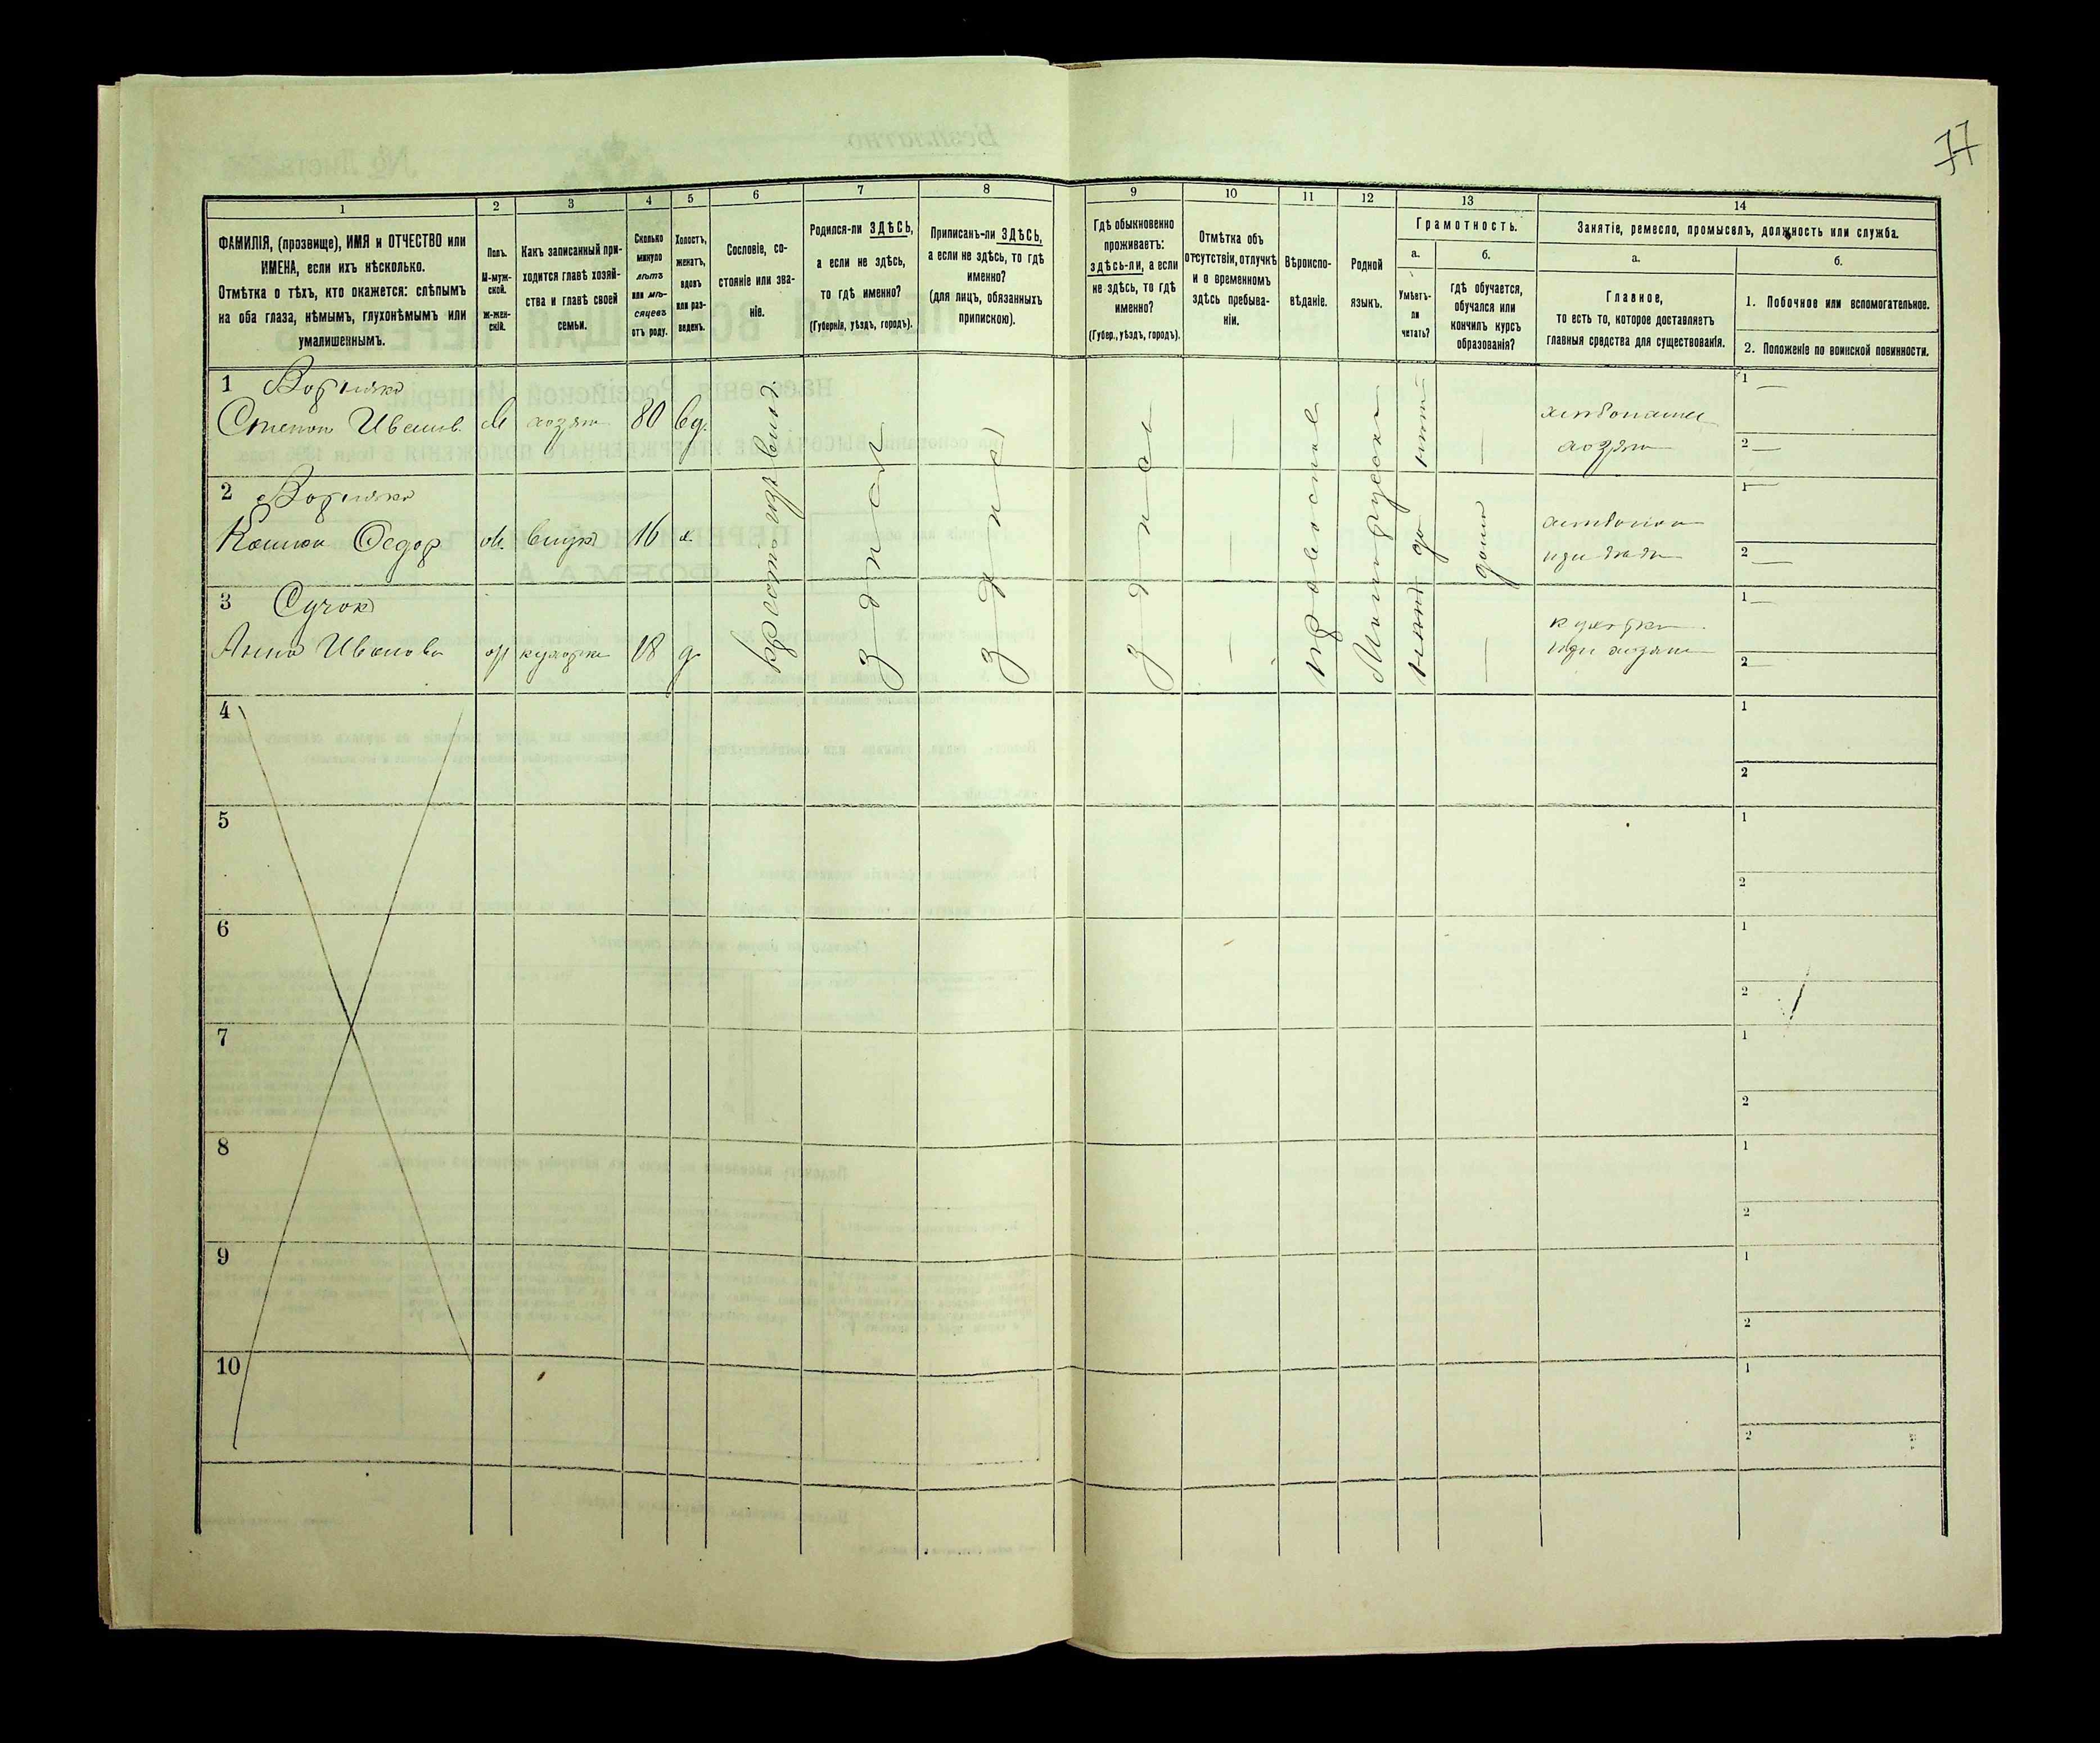 77
1
2
3
4
5
6
7
8
9
10
11
12
13
14
ФАМИЛІЯ, (прозвище), ИМЯ и ОТЧЕСТВО или
ИМЕНА, если ихъ нѣсколько.
Отмѣтка о тѣхъ, кто окажется: слѣпымъ
на оба глаза, нѣмымъ, глухонѣмымъ или
умалишеннымъ.
Полъ.
М-муж-
ской.
Ж-жен-
скій.
Какъ записанный при-
ходится главѣ хозяй-
ства и главѣ своей
семьи.
Сколько
минуло
лѣтъ
или мѣ-
сяцевъ
отъ роду.
Холостъ,
женатъ,
вдовъ
или раз-
веденъ.
Сословіе, со-
стояніе или зва-
ніе.
Родился-ли ЗДѢСЬ,
а если не здѣсь,
то гдѣ именно?
(Губернія, уѣздъ, городъ).
Приписанъ-ли ЗДѢСЬ,
а если не здѣсь, то гдѣ
именно?
(для лицъ, обязанныхъ
припискою).
Гдѣ обыкновенно
проживаетъ:
здѣсь-ли, а если
не здѣсь, то гдѣ
именно?
(Губер., уѣздъ, городъ).
Отмѣтка объ
отсутствіи, отлучкѣ
и о временномъ
здѣсь пребыва-
ніи.
Вѣроиспо-
вѣданіе.
Родной
языкъ.
Грамотность.
а.
Умѣетъ-
ли
читать?
б.
гдѣ обучается,
обучался или
кончилъ курсъ
образованія?
Занятіе, ремесло, промыселъ, должность или служба.
а.
Главное,
то есть то, которое доставляетъ
главныя средства для существованія.
б.
1. Побочное или вспомогательное.
2. Положеніе по воинской повинности.
1
Степан Иванов. М хозяин 80 вд.
хозяин
1 —
2 —
2
Федор м. внук 16 х.
1 —
2 —
3 Сучок
Анна Иванова кухарка 18 д
кухарка
при хозяине
1 —
2 —
здесь
здесь
здесь
Малорусский
нет
да
нет
дома
4
1
2
5
1
2
6
1
2
7
1
2
8
1
2
9
1
2
10
1
2